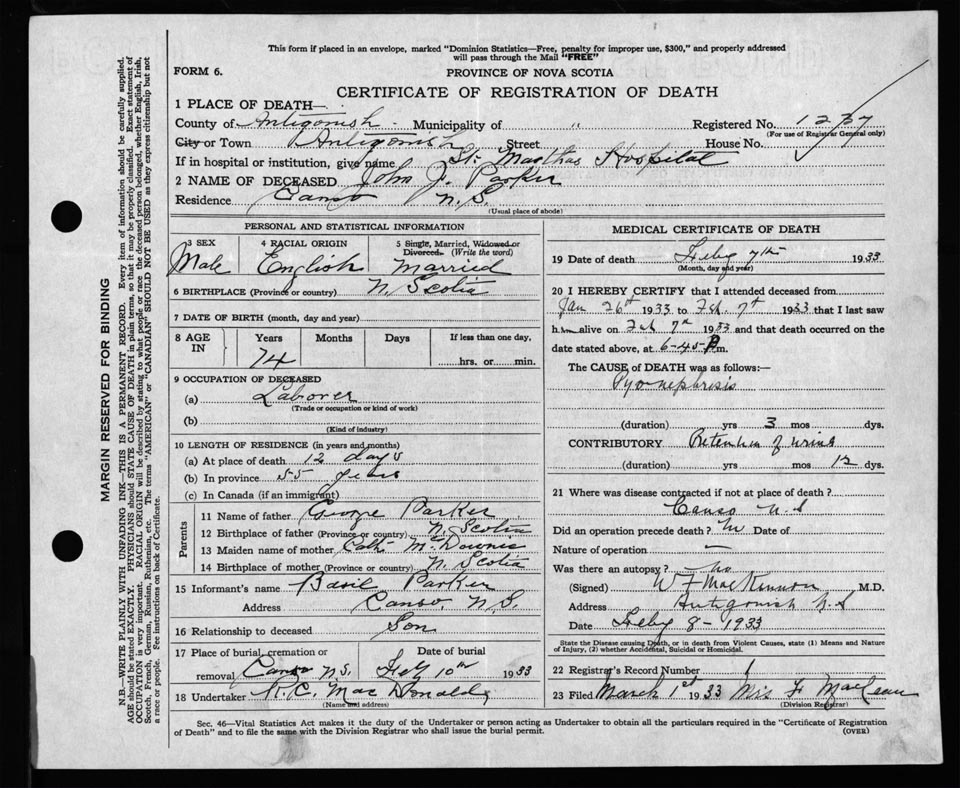 This form if placed in an envelope, marked "Dominion Statistics—Free, penalty for improper use, $300," and properly addressed
will pass through the Mail "FREE"
FORM 6.
PROVINCE OF NOVA SCOTIA
CERTIFICATE OF REGISTRATION OF DEATH
1 PLACE OF DEATH—
County of Antigonish Municipality of " Registered No. 1277
(For use of Registrar General only)
City or Town Antigonish Street House No.
If in hospital or institution, give name St. Marthas Hospital
2 NAME OF DECEASED John J. Parker
Residence Canso N.S.
(Usual place of abode)
PERSONAL AND STATISTICAL INFORMATION
3 SEX 4 RACIAL ORIGIN 5 Single, Married, Widowed or
Divorced. (Write the word)
Male English Married
6 BIRTHPLACE (Province or country) N. Scotia
7 DATE OF BIRTH (month, day and year)
8 AGE IN Years Months Days If less than one day,
74 hrs. or min.
9 OCCUPATION OF DECEASED
(a) Laborer
(Trade or occupation or kind of work)
(b)
(Kind of industry)
10 LENGTH OF RESIDENCE (in years and months)
(a) At place of death 12 days
(b) In province 55 years
(c) In Canada (if an immigrant)
Parents
11 Name of father George Parker
12 Birthplace of father (Province or country) N. Scotia
13 Maiden name of mother Cath McDownie
14 Birthplace of mother (Province or country) N. Scotia
15 Informant's name Basil Parker
Address Canso, N.S.
16 Relationship to deceased Son
17 Place of burial, cremation or Date of burial
removal Canso N.S. Feby 10th 1933
18 Undertaker R.C. Mac Donald
(Name and address)
MEDICAL CERTIFICATE OF DEATH
19 Date of death Feby 7th 1933
(Month, day and year)
20 I HEREBY CERTIFY that I attended deceased from
Jan 26th 1933 to Feb. 7th 1933 that I last saw
him alive on Feb 7th 1933 and that death occurred on the
date stated above, at 6-45 P.m.
The CAUSE of DEATH was as follows:—
Pyonephrosis
(duration) yrs 3 mos dys.
CONTRIBUTORY Retention of urine
(duration) yrs mos 12 dys.
21 Where was disease contracted if not at place of death?
Canso N.S
Did an operation precede death? No Date of
Nature of operation —
Was there an autopsy? No
(Signed) W F MacKinnon M.D.
Address Antigonish N.S
Date Feby 8-1933
State the Disease causing Death, or in death from Violent Causes, state (1) Means and Nature
of Injury, (2) whether Accidental, Suicidal or Homicidal.
22 Registrar's Record Number 1
23 Filed March 1st 1933 Mrs F MacLean
(Division Registrar)
Sec. 46—Vital Statistics Act makes it the duty of the Undertaker or person acting as Undertaker to obtain all the particulars required in the "Certificate of Registration
of Death" and to file the same with the Division Registrar who shall issue the burial permit.
(OVER)
MARGIN RESERVED FOR BINDING
N.B.—WRITE PLAINLY WITH UNFADING INK—THIS IS A PERMANENT RECORD. Every item of information should be carefully supplied.
AGE should be stated EXACTLY. PHYSICIANS should STATE CAUSE OF DEATH in plain terms, so that it may be properly classified. Exact statement of
OCCUPATION is very important. RACIAL ORIGIN will be described by stating to what people or race the deceased person belonged, whether English, Irish,
Scotch, French, German, Russian, Ruthenian, etc. The terms "AMERICAN" or "CANADIAN" SHOULD NOT BE USED as they express citizenship but not
a race or people. Fee instructions on back of Certificate.